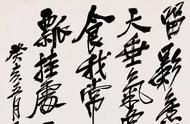 留影
天垂氣
食我常
瓢挂處
癸亥五月